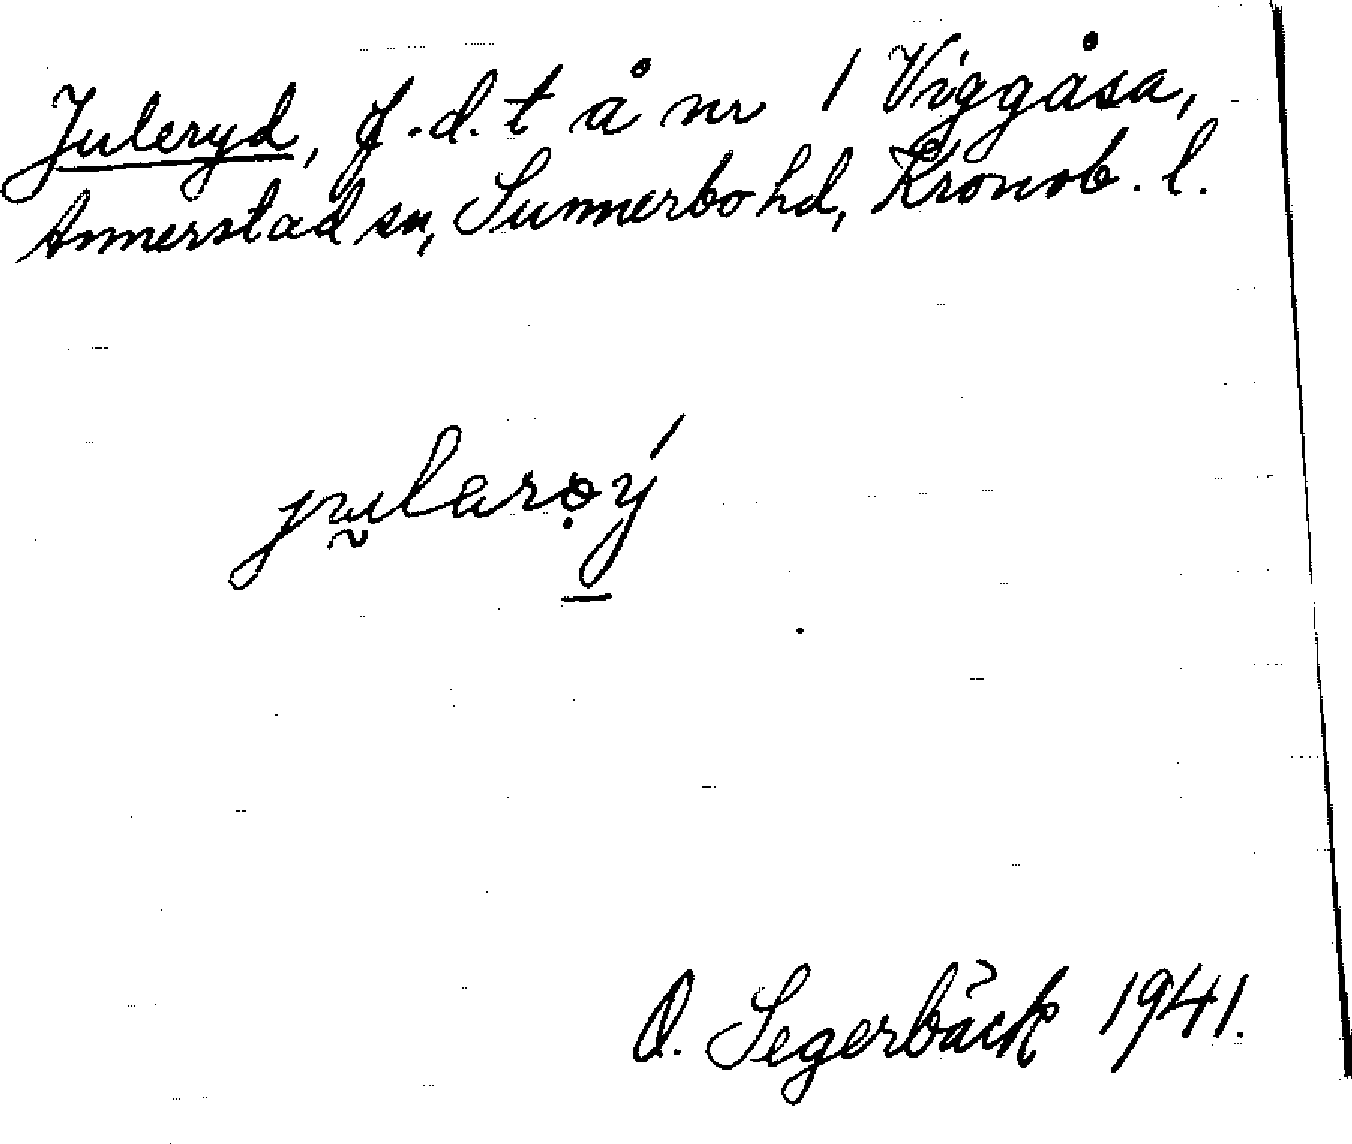 Juleryd, f.d. t å nr 1 Viggåsa,
Annerstad sn, Sunnerbo hd, Kronob. l.
O. Segerbäck 1941.